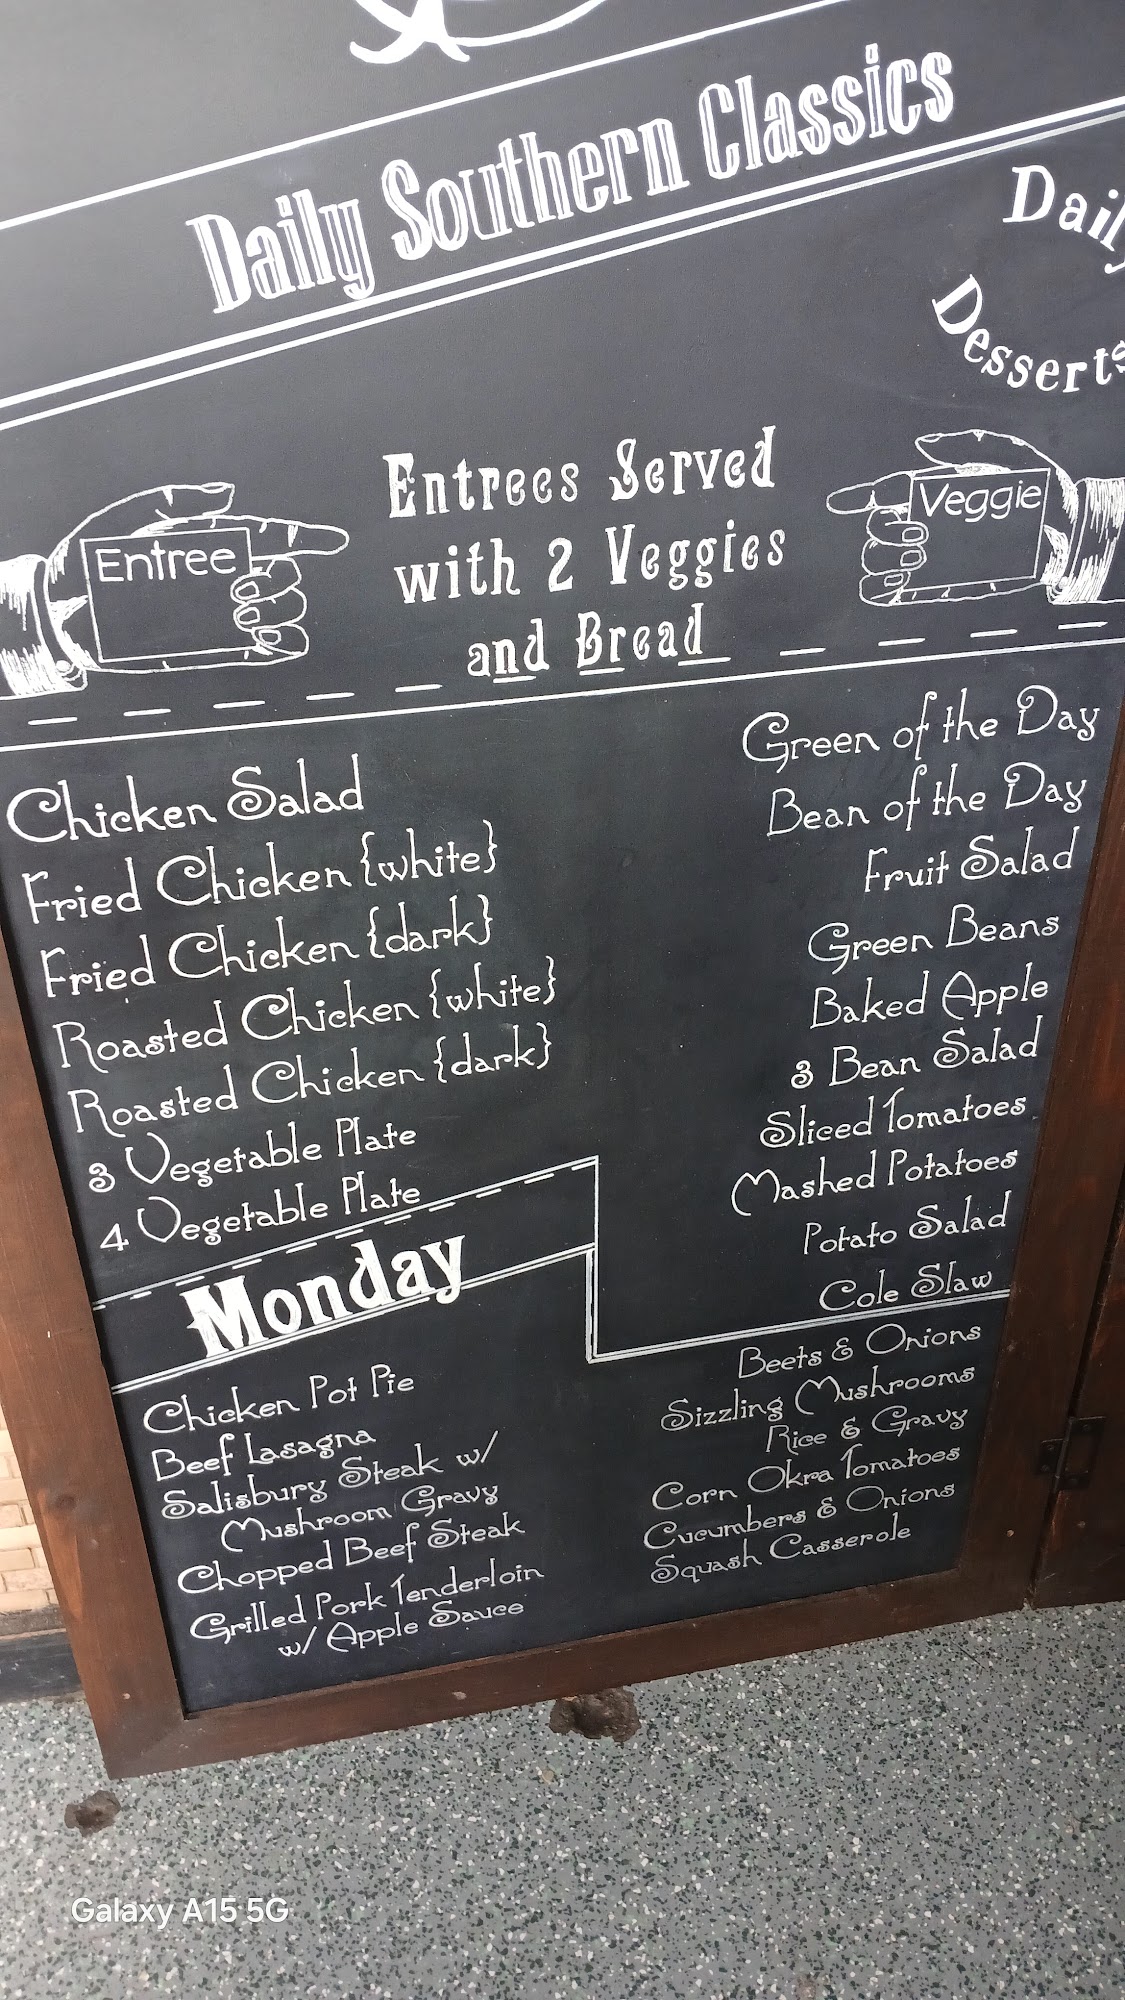 Daily Southern Classics
Daily
Desserts
Entree
Entrees Served
with 2 Veggies
and Bread
Veggie
Chicken Salad
Fried Chicken {white}
Fried Chicken {dark}
Roasted Chicken {white}
Roasted Chicken {dark}
3 Vegetable Plate
4 Vegetable Plate
Green of the Day
Bean of the Day
Fruit Salad
Green Beans
Baked Apple
3 Bean Salad
Sliced Tomatoes
Mashed Potatoes
Potato Salad
Cole Slaw
Monday
Chicken Pot Pie
Beef Lasagna
Salisbury Steak w/
Mushroom Gravy
Chopped Beef Steak
Grilled Pork Tenderloin
w/ Apple Sauce
Beets & Onions
Sizzling Mushrooms
Rice & Gravy
Corn Okra Tomatoes
Cucumbers & Onions
Squash Casserole
Galaxy A15 5G